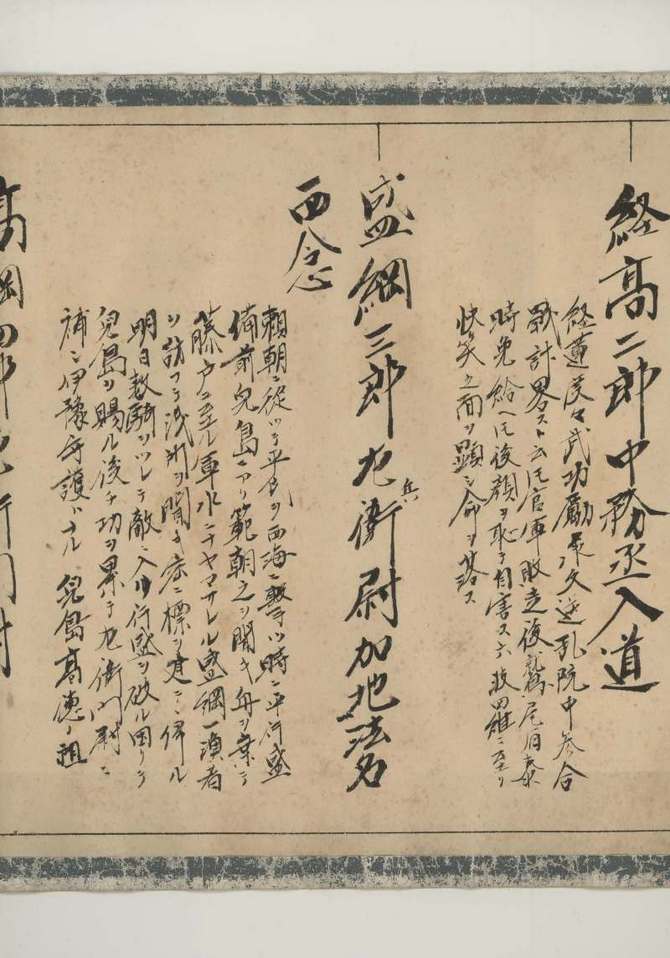 経高二郎中務丞入道
経蓮度々武功励承久逆乱院中参合
戦計畧スト云圧官軍敗走後鷲尾泰
時免給ヘ圧後顔ヲ恥テ自害ス六波羅ニ至リ
快笑ヒ面ヲ顕シ命ヲ落ス
盛綱三郎左兵衛尉加地法名
西念
頼朝ニ従ツテ平氏ヲ西海ニ撃ツ時ニ平行盛
備前児島ニアリ範朝之ヲ聞キ舟ヲ棄テ
藤戸ニ至ル軍水ニチヤマサレル盛綱一漁者
ヲ訪フテ浅所ヲ聞キ床ニ標ヲ建シ伴ル
明日数騎ヲツレテ敵ニ入リ行盛ヲ破ル因リテ
児島ヲ賜ル後チ功ヲ累テ左衛門尉ニ
補シ伊豫守護トナル 児島高徳ノ祖
高綱四郎左衛門尉